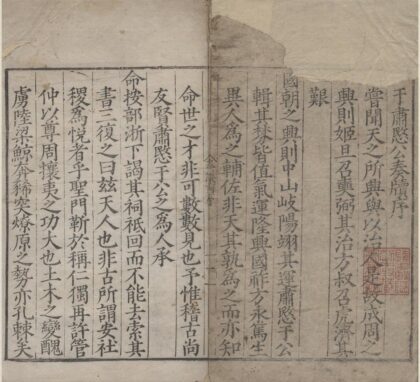 于肅愍公奏牘序
嘗聞天之所與與以治人是故成周之
興則姬旦召奭弼其治方叔召虎濟其
艱
國朝之興則中山岐陽翊其運肅愍于公
輯其棼皆值氣運隆興國祚方永篤生
異人為之輔佐非天其孰為之而亦知
命世之才非可數數見也予惟稽古尚
友賢肅愍于公之為人承
命按部浙下謁其祠祗回而不能去索其
書三復之曰玆天人也非古所謂安社
稷為悅者乎聖門靳於稱仁獨再許管
仲以尊周攘夷之功大也土木之變醜
虜陸梁鯨奔豨突燎原之勢亦孔棘矣